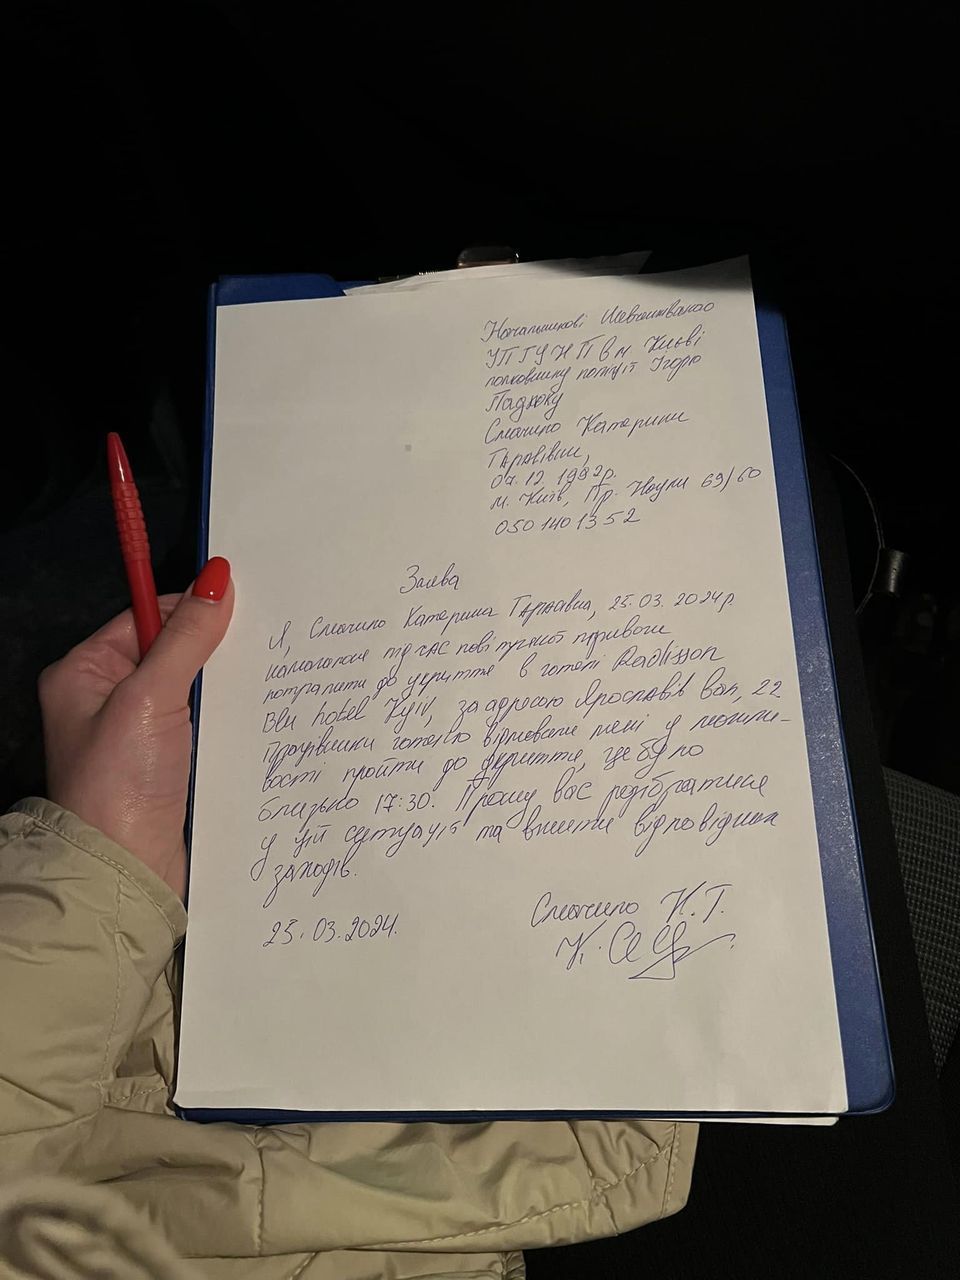 Начальникові Шевченківського
УП ГУНП в м. Києві
полковнику поліції Ігорю
Падюку
Смачило Катерини
Тарасівни,
07.12.1992р.
м. Київ, Пр. Науки 69/60
050 140 13 52
Заява
Я, Смачило Катерина Тарасівна, 25.03.2024р.
намагалася під час повітряної тривоги
потрапити до укриття в готелі Radisson
Blu hotel Kyiv, за адресою Ярославів вал, 22
Працівники готелю відмовили мені у можли-
вості пройти до укриття, це було
близько 17:30. Прошу вас розібратися
у цій ситуації та вжити відповідних
заходів.
25.03.2024. Смачило К.Т.